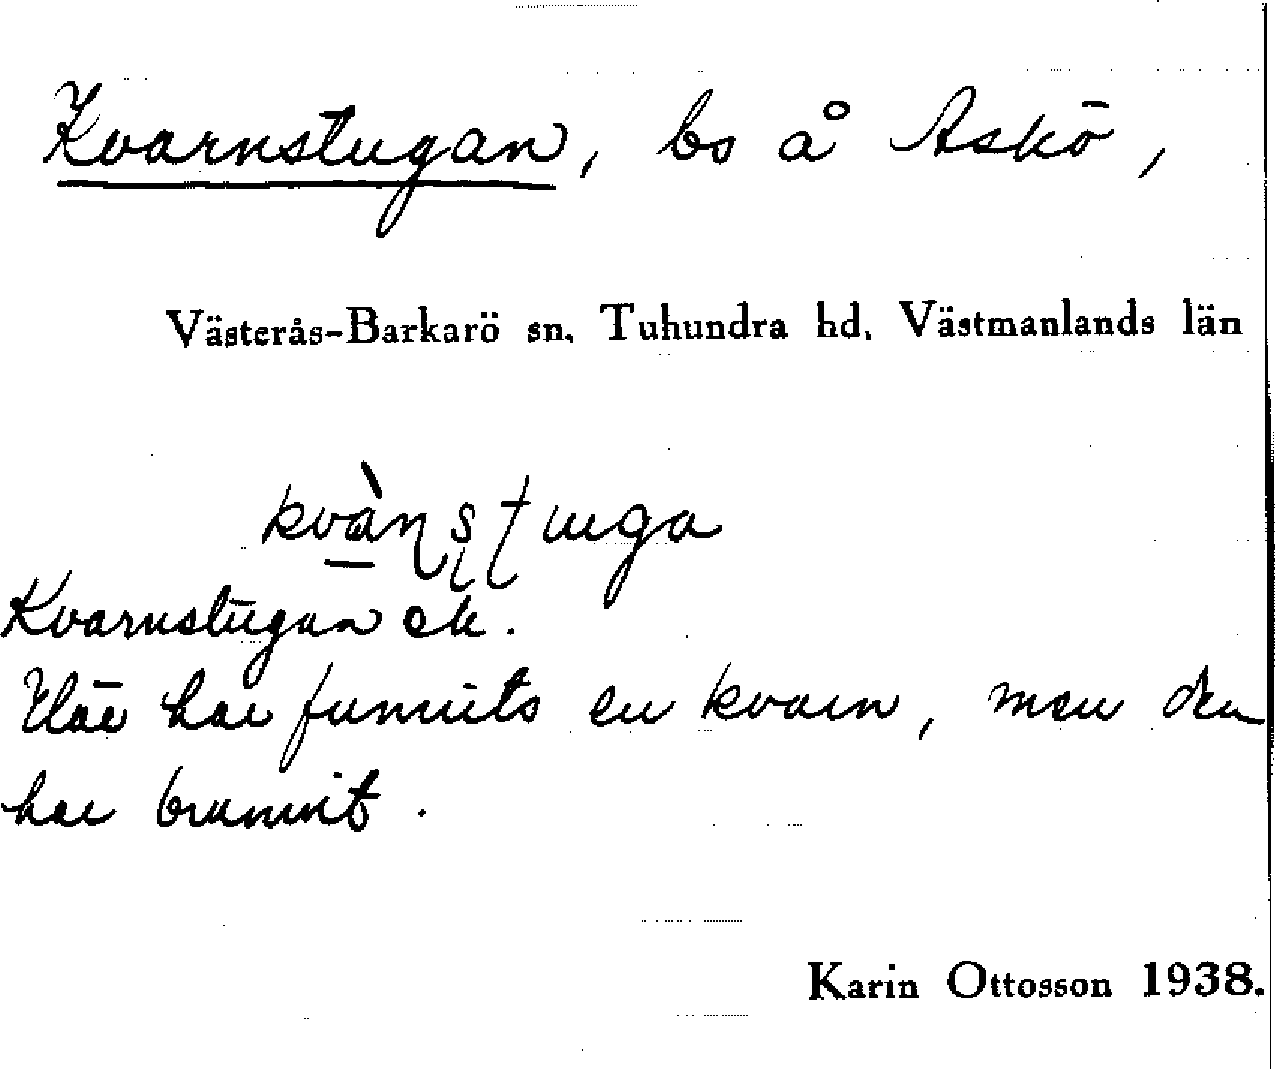 Kvarnstugan, bs å Askö,
Västerås-Barkarö sn. Tuhundra hd. Västmanlands län
kvànstuga
Kvarnstugan ek.
Här har funnits en kvarn, men den
har brunnit.
Karin Ottosson 1938.